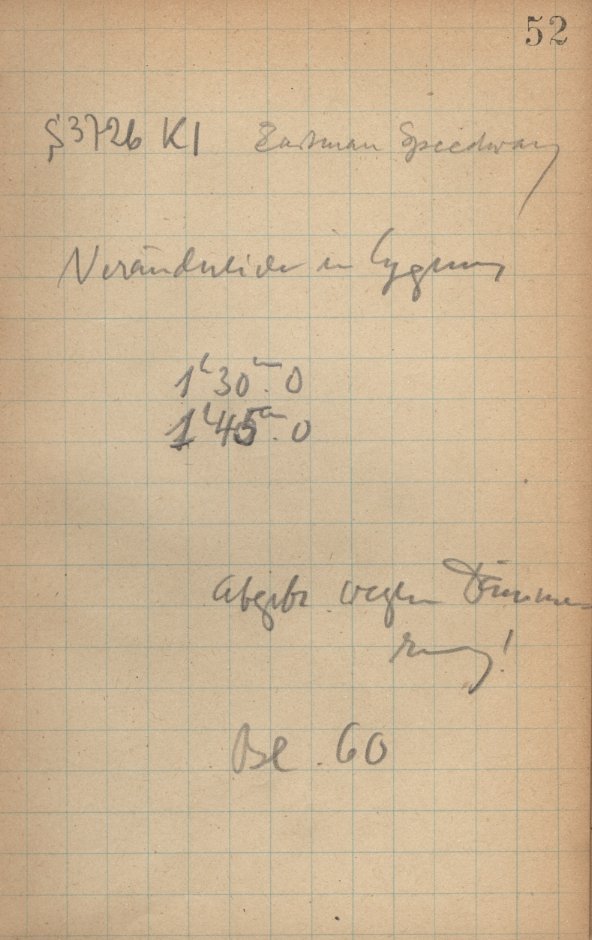 52
S3726 K1 Eastman Speedway
Veränderliche in Cygnus
1h30m.0
1h45m.0
wegen Dämme-
rung!
Bl. 60